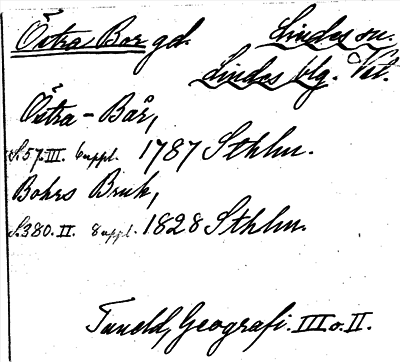 Östra Bor gd. Lindes sn.
Lindes blg. Vst.
Östra-Bår,
S. 57. III. 6 uppl. 1787 Sthlm.
Bohrs Bruk,
S. 380. II. 8 uppl. 1828 Sthlm.
Tuneld, Geografi. III o. II.